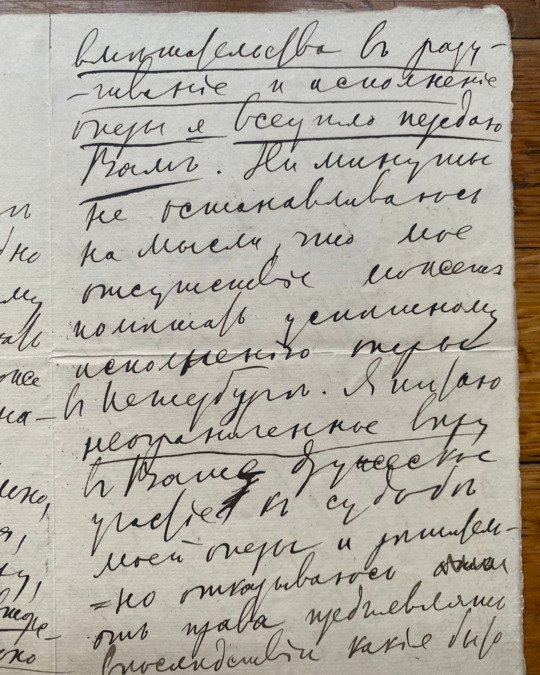 вмѣшательства въ разу-
-чиваніе и исполненіе
оперы я всецѣло передаю
Вамъ. Ни минуты
не останавливаюсь
на мысли, что мое
отсутствіе можетъ
помѣшать успѣшному
исполненію оперы
въ Петербургѣ. Я питаю
неограниченное вѣру
въ Ваше дружеское
участіе къ судьбѣ
моей оперы и
=но отказываюсь
отъ права предъявлять
впослѣдствіи какіе бы